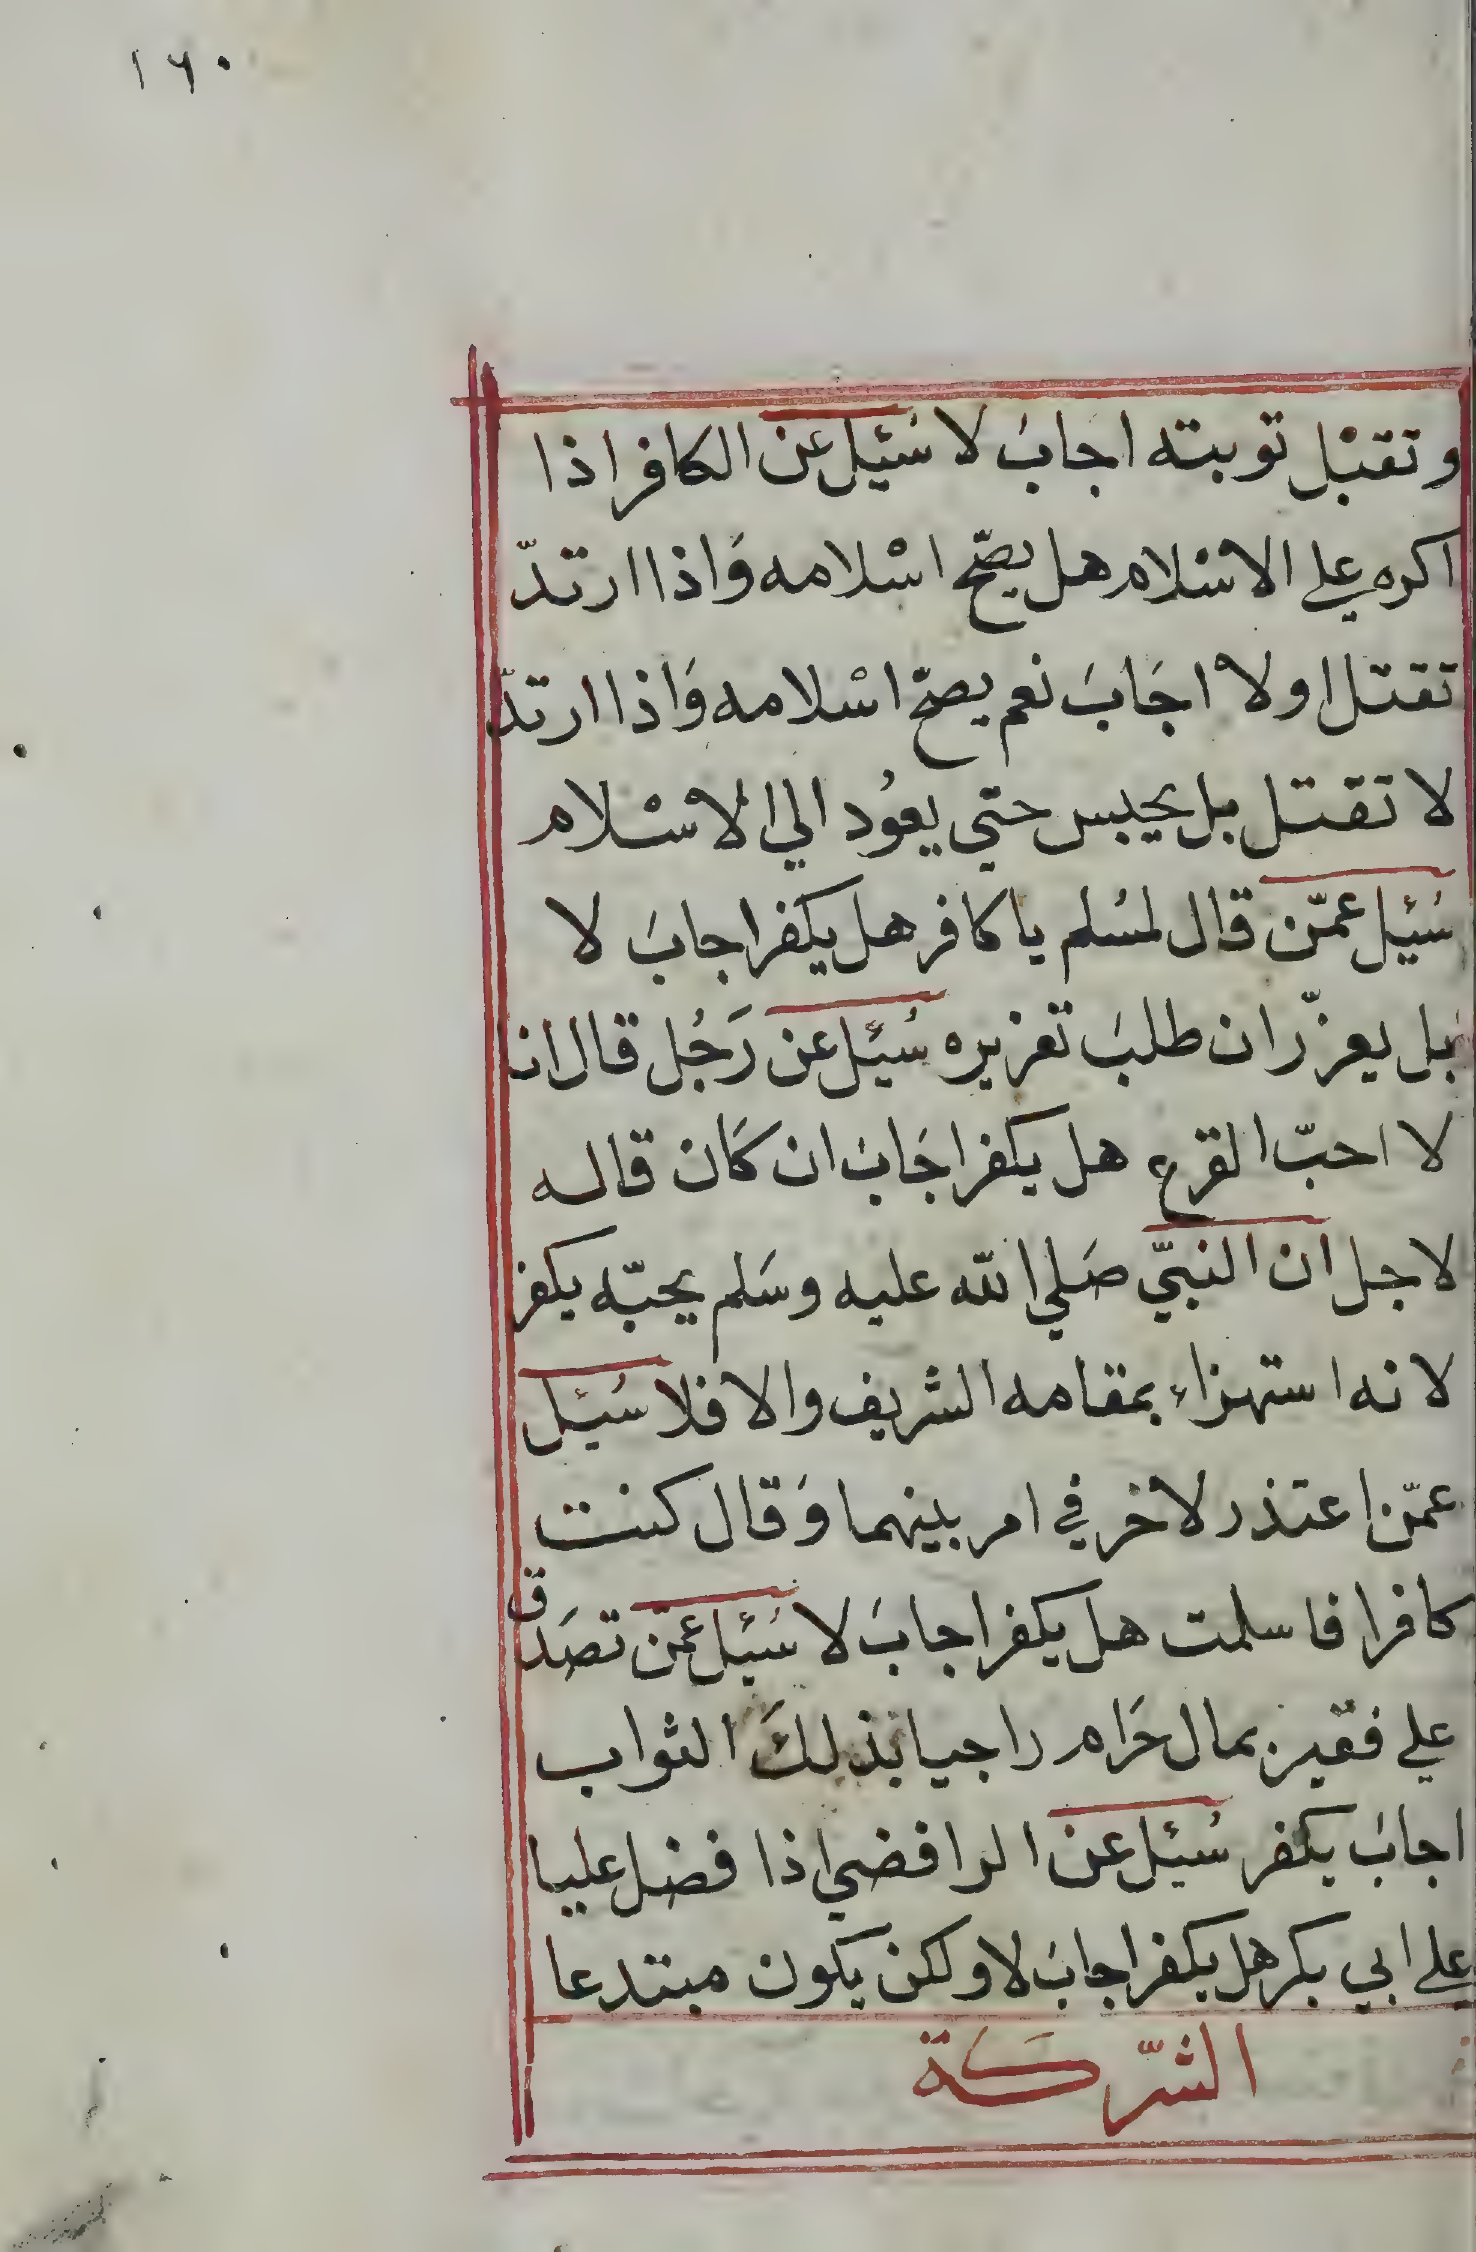 ١٦٠
وتقبل توبته اجاب لا سُئيل عن الكافر اذا
اكره علي الاسْلام هل يصحّ اسْلامه وَاذا ارتدّ
تقتل اولا اجَابَ نعم يصحّ اسْلامه وَاذا ارتدّ
لا تقتل بل يحبس حتي يعوُد الي الاسْلام
سُئيل عمّن قال لمسُلم يا كافر هل يكفر اجابَ لا
بل يعزّر ان طلبَ تعزيره سُئيل عن رَجُل قال انا
لا احبّ القرع هل يكفر اجَابَ ان كَان قاله
لاجل ان النبيّ صَلي الله عليه وسَلم يحبّه يكفر
لانه استهزاء بمقامه الشريف والا فلا سُئيل
عمّن اعتذر لاخر في امر بينهما وَقال كنت
كافرا فاسلمت هل يكفر اجابَ لا سُئيل عمّن تصَدق
علي فقير بمال حَرام راجيا بذلكَ الثواب
اجابَ يكفر سُئيل عن الرافضي اذا فضل عليا
علي ابي بكر هل يكفر اجابَ لا ولكن يكون مبتدعا
الشّركة